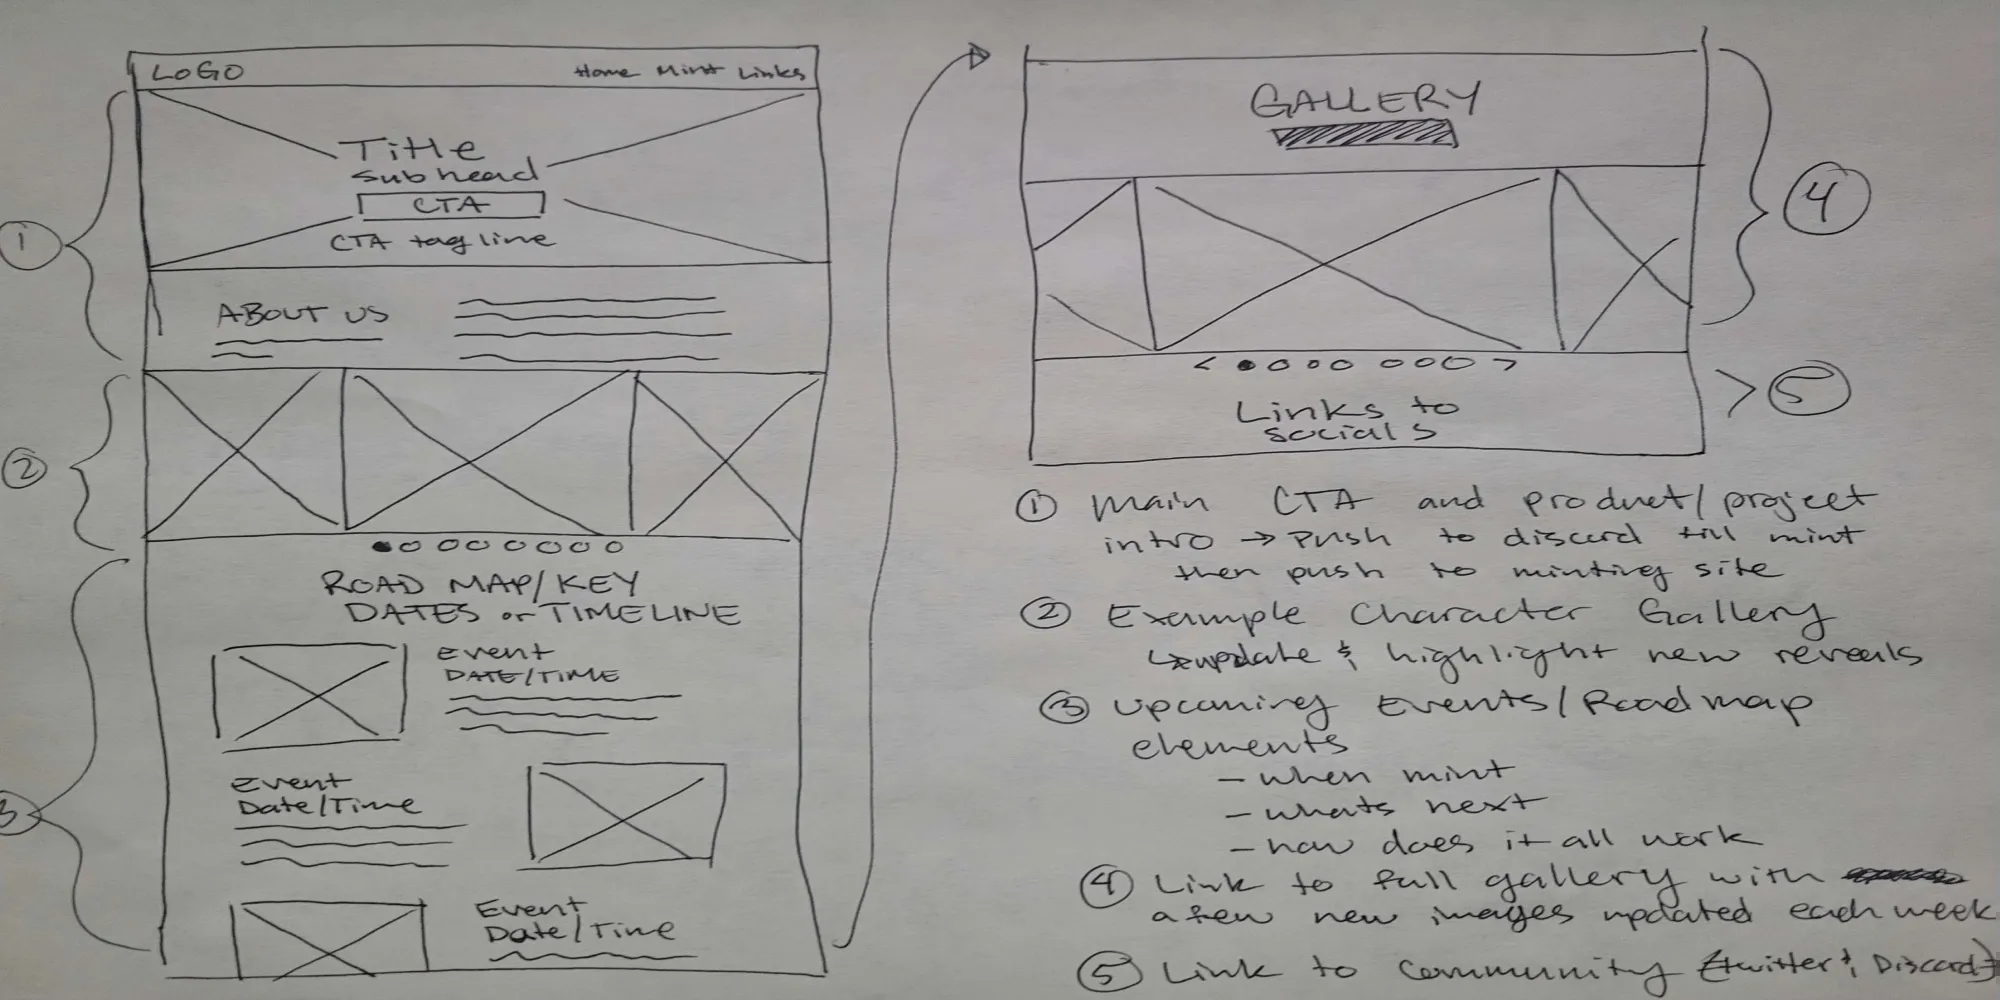 LOGO
Home Mint Links
Title
Subhead
CTA
CTA tag line
1
ABOUT US
2
ROAD MAP/KEY
DATES or TIMELINE
Event
DATE/TIME
Event
Date/Time
3
Event
Date/Time
GALLERY
4
< >
Links to
socials
> 5
1 Main CTA and product/project
intro → Push to discord till mint
then push to minting site
2 Example Character Gallery
↳ update & highlight new reveals
3 Upcoming Events/Roadmap
elements
- when mint
- whats next
- how does it all work
4 Link to full gallery with
a few new images updated each week
5 Link to Community (twitter & Discord)